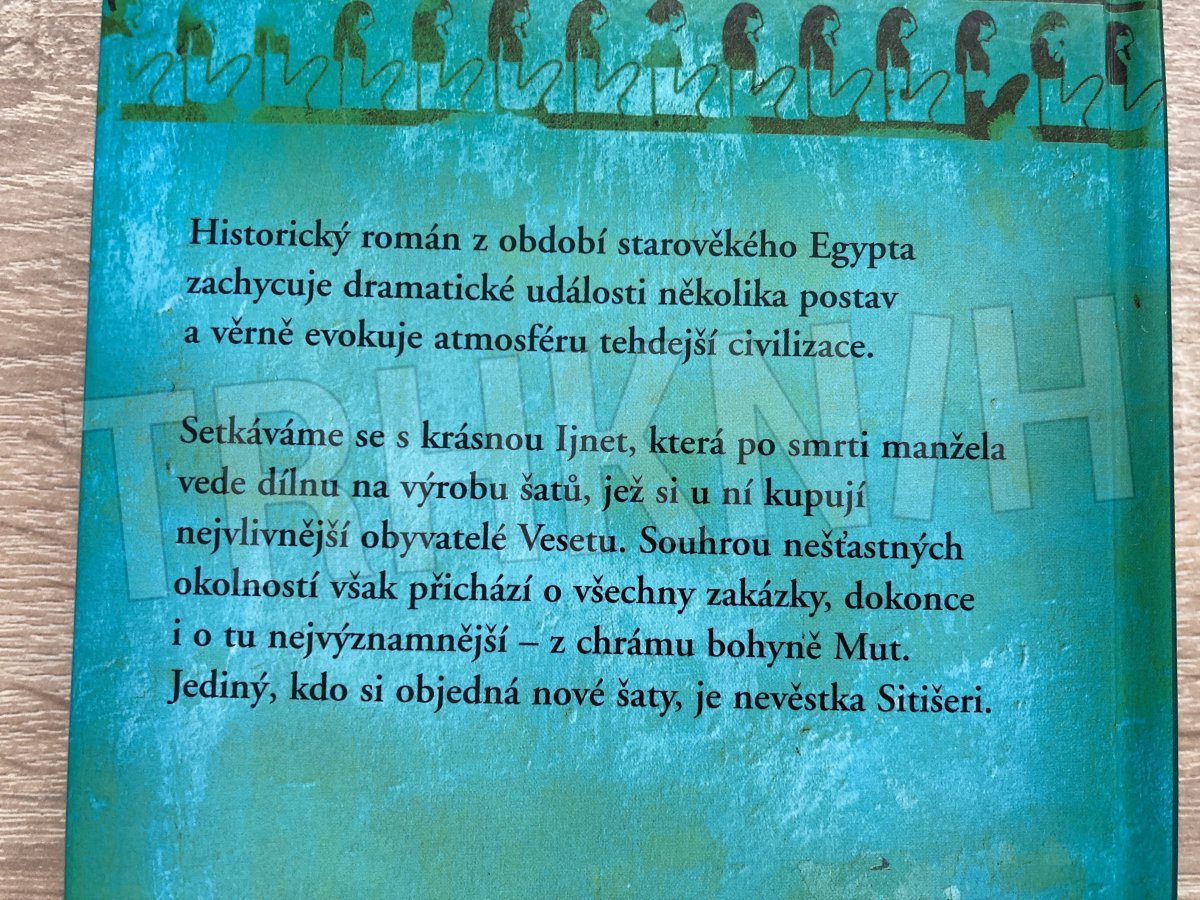 Historický román z období starověkého Egypta
zachycuje dramatické události několika postav
a věrně evokuje atmosféru tehdejší civilizace.
Setkáváme se s krásnou Ijnet, která po smrti manžela
vede dílnu na výrobu šatů, jež si u ní kupují
nejvlivnější obyvatelé Vesetu. Souhrou nešťastných
okolností však přichází o všechny zakázky, dokonce
i o tu nejvýznamnější – z chrámu bohyně Mut.
Jediný, kdo si objedná nové šaty, je nevěstka Sitišeri.
TRHKNIH